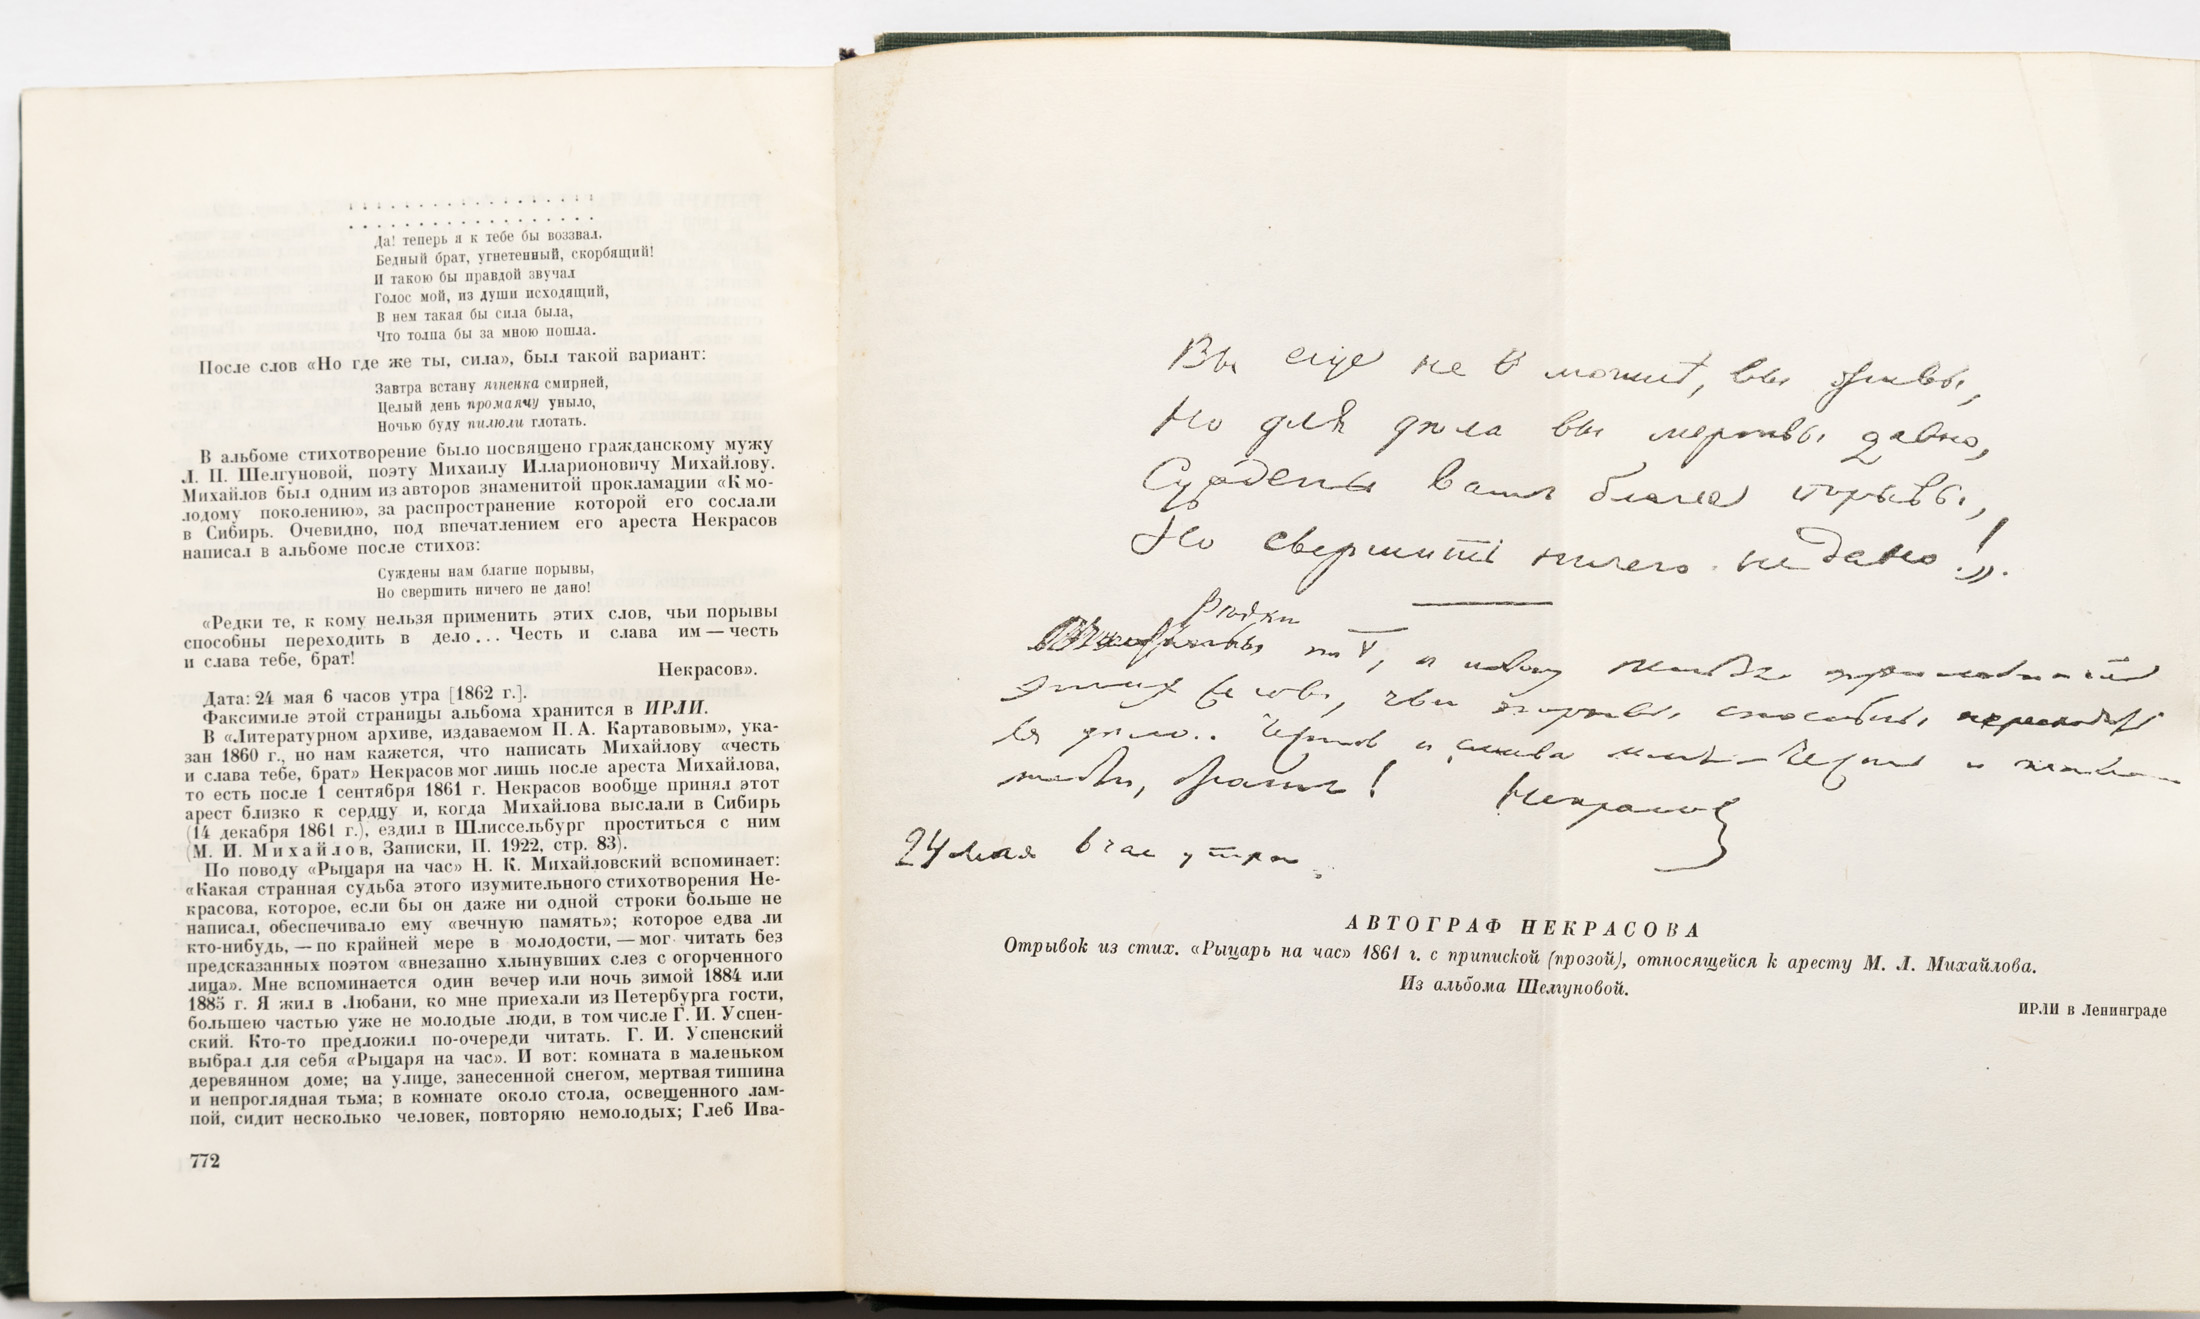 Да! теперь я к тебе бы воззвал,
Бедный брат, угнетенный, скорбящий!
И такою бы правдой звучал
Голос мой, из души исходящий,
В нем такая бы сила была,
Что толпа бы за мною пошла.
После слов «Но где же ты, сила», был такой вариант:
Завтра встану ягненка смирней,
Целый день промаячу уныло,
Ночью буду пилюли глотать.
В альбоме стихотворение было посвящено гражданскому мужу
Л. П. Шелгуновой, поэту Михаилу Илларионовичу Михайлову.
Михайлов был одним из авторов знаменитой прокламации «К мо-
лодому поколению», за распространение которой его сослали
в Сибирь. Очевидно, под впечатлением его ареста Некрасов
написал в альбоме после стихов:
Суждены нам благие порывы,
Но свершить ничего не дано!
«Редки те, к кому нельзя применить этих слов, чьи порывы
способны переходить в дело... Честь и слава им — честь
и слава тебе, брат!
Некрасов».
Дата: 24 мая 6 часов утра [1862 г.].
Факсимиле этой страницы альбома хранится в ИРЛИ.
В «Литературном архиве, издаваемом П. А. Картавовым», ука-
зан 1860 г., но нам кажется, что написать Михайлову «честь
и слава тебе, брат» Некрасов мог лишь после ареста Михайлова,
то есть после 1 сентября 1861 г. Некрасов вообще принял этот
арест близко к сердцу и, когда Михайлова выслали в Сибирь
(14 декабря 1861 г.), ездил в Шлиссельбург проститься с ним
(М. И. Михайлов, Записки, П. 1922, стр. 83).
По поводу «Рыцаря на час» Н. К. Михайловский вспоминает:
«Какая странная судьба этого изумительного стихотворения Не-
красова, которое, если бы он даже ни одной строки больше не
написал, обеспечивало ему «вечную память»; которое едва ли
кто-нибудь, — по крайней мере в молодости, — мог читать без
предсказанных поэтом «внезапно хлынувших слез с огорченного
лица». Мне вспоминается один вечер или ночь зимой 1884 или
1885 г. Я жил в Любани, ко мне приехали из Петербурга гости,
большею частью уже не молодые люди, в том числе Г. И. Успен-
ский. Кто-то предложил по-очереди читать. Г. И. Успенский
выбрал для себя «Рыцаря на час». И вот: комната в маленьком
деревянном доме; на улице, занесенной снегом, мертвая тишина
и непроглядная тьма; в комнате около стола, освещенного лам-
пой, сидит несколько человек, повторяю немолодых; Глеб Ива-
772
Вы еще не в могиле, вы живы,
Но для дела вы мертвы давно,
Суждены вам благие порывы,
Но свершить ничего не дано!».
Редки
те, к кому нельзя применить
этих слов, чьи порывы способны переходить
в дело.. Честь и слава имъ – Честь и слава
тебе, братъ! Некрасов
24 мая 6 час утра.
АВТОГРАФ НЕКРАСОВА
Отрывок из стих. «Рыцарь на час» 1861 г. с припиской (прозой), относящейся к аресту М. Л. Михайлова.
Из альбома Шелгуновой.
ИРЛИ в Ленинграде